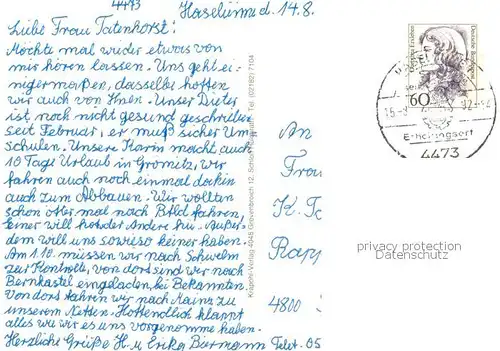 4473 Haselünne d. 14.8.
Liebe Frau Tatenhorst!
Möchte mal wieder etwas von
mir hören lassen. Uns geht ei-
nigermaßen, dasselbe hoffen
wir auch von Ihnen. Unser Dieter
ist noch nicht gesund geschrieben
seit Februar, er muß sicher Um-
schulen. Unsere Karin macht auch
10 Tage Urlaub in Grömitz, wir
fahren auch noch einmal dorhin
auch zum Abbauen. Wir wollten
schon öfter mal nach Btld fahren,
einer will hot der Andere hü. Außer-
dem will uns sowieso keiner haben.
Am 1.10. müssen wir nach Schwelm
zur Kontrolle, von dort sind wir nach
Bernkastel eingeladen, bei Bekannten.
Von dort fahren wir nach Mainz zu
unserem Neffen. Hoffendlich klappt
alles wie wir es uns vorgenomme haben.
Herzliche Grüße H. u Erika Biermann Telef. 05
Krapohl-Verlag 4048 Grevenbroich 12, Tel. (02182) 7104
An
Frau
K. Ta
Rapp
4800
Deutsche Bundespost
60
Erholungsort
4473
privacy protection
Datenschutz